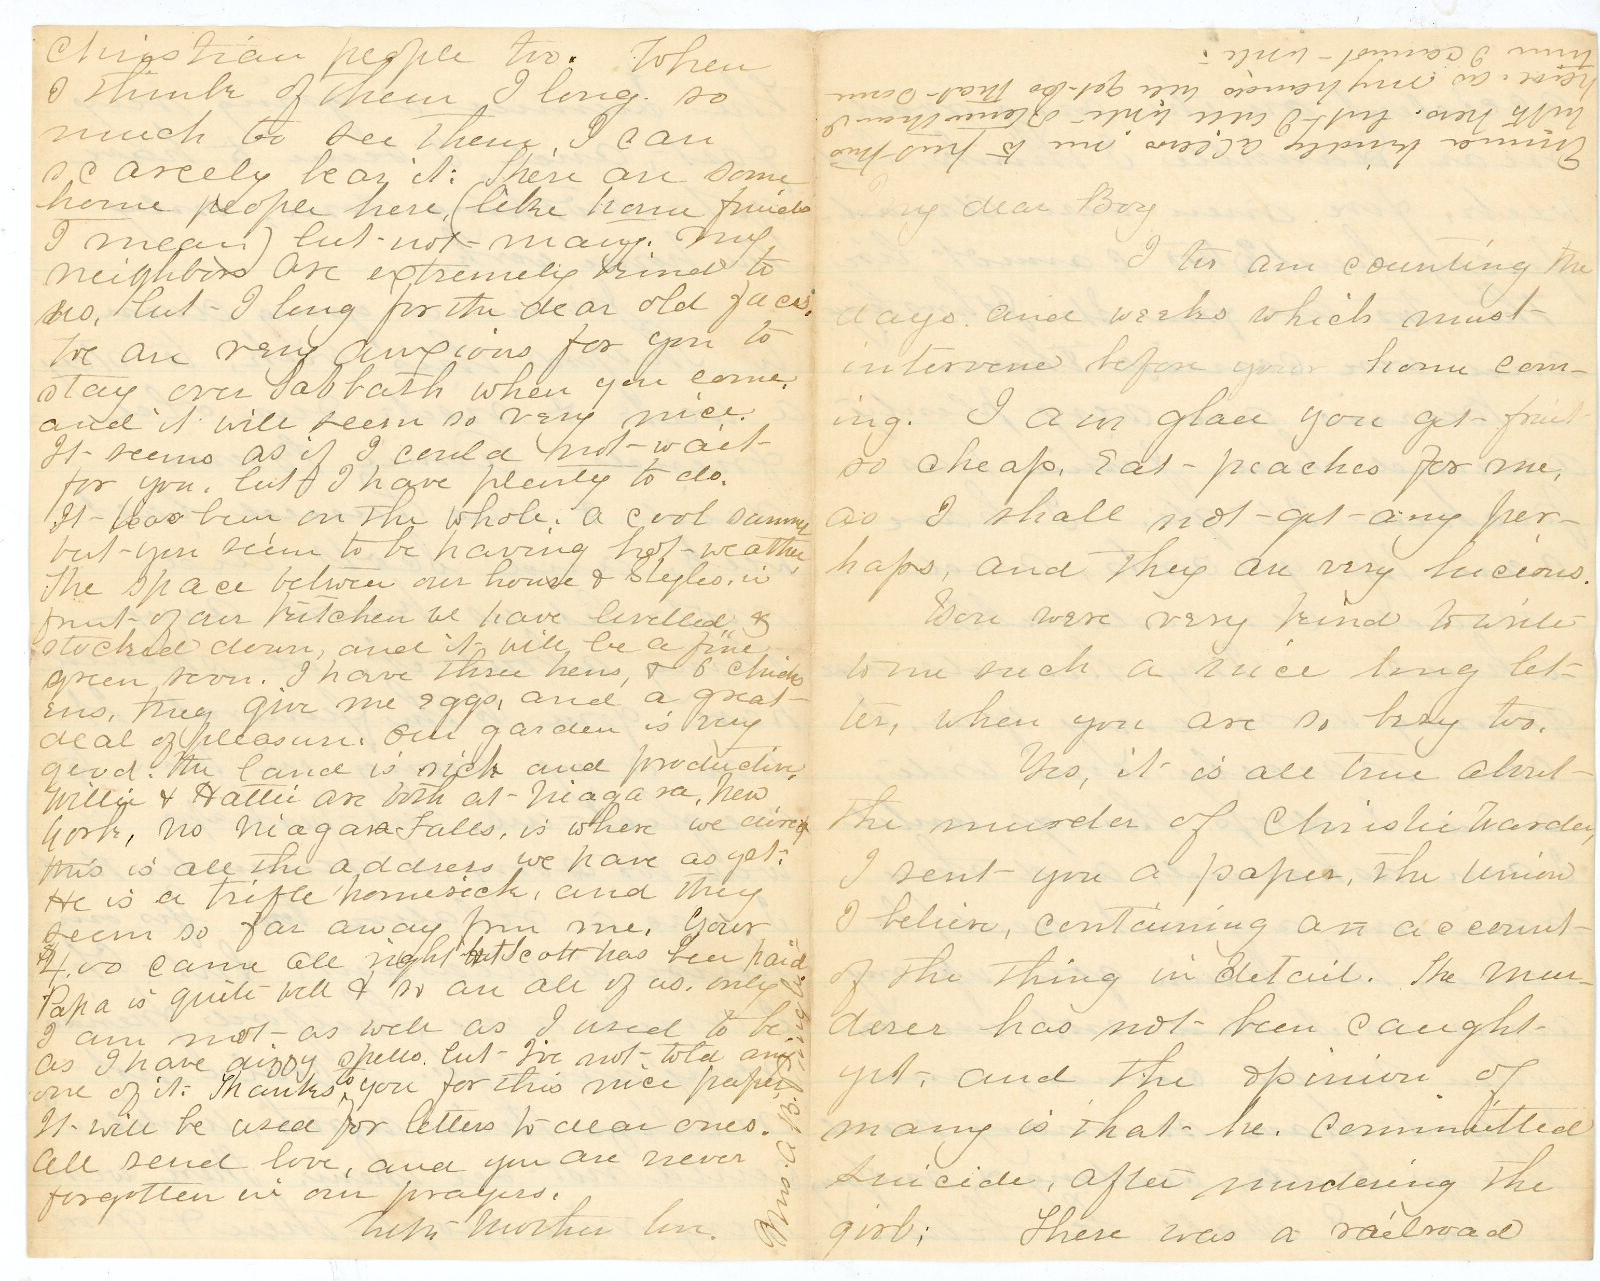 My dear Boy
I too am counting the
days and weeks which must
intervene before your home com-
ing. I am glad you get fruit
so cheap, Eat peaches for me,
as I shall not get any per-
haps, and they are very lucious.
You were very kind to write
to me such a nice long let-
ter, when you are so busy too.
Yes, it is all true about
the murder of Christie Warden,
I sent you a paper, the Union
I believe, containing an account
of the thing in detail. The mur-
derer has not been caught
yet, and the opinion of
many is that he committed
suicide, after murdering the
girl; There was a railroad
Christian people too. When
I think of them I long so
much to see them, I can
scarcely bear it. There are some
home people here, (like home friends
I mean) but not many. My
neighbors are extremely kind to
us, but I long for the dear old faces.
We are very anxious for you to
stay over Sabbath when you come,
and it will seem so very nice.
It seems as if I could not wait
for you, but I have plenty to do.
It has been on the whole, a cool summer
but you seem to be having hot weather,
The space between our house & in
front of our kitchen we have levelled &
stocked down, and it will be a fine
green soon. I have three hens, & 6 chick
ens, they give me eggs, and a great
deal of pleasure. Our garden is very
good. The land is rich and productive,
Willie & Hattie are both at Niagara, New
York, no Niagara Falls, is where we direct
this is all the address we have as yet.
He is a trifle homesick, and they
seem so far away from me. Your
$4.00 came all right but Scott has been paid
Papa is quite well & so are all of us, only
I am not as well as I used to be
as I have dizzy spells, but I've not told any
one of it. Thanks to you for this nice paper
It will be used for letters to dear ones.
All send love, and you are never
forgotten in our prayers.
Mother love.
Mrs. A. B.
Emma kindly allows me to put this
with hers, but I will write
here, as my hands will get so that
time I cannot write.